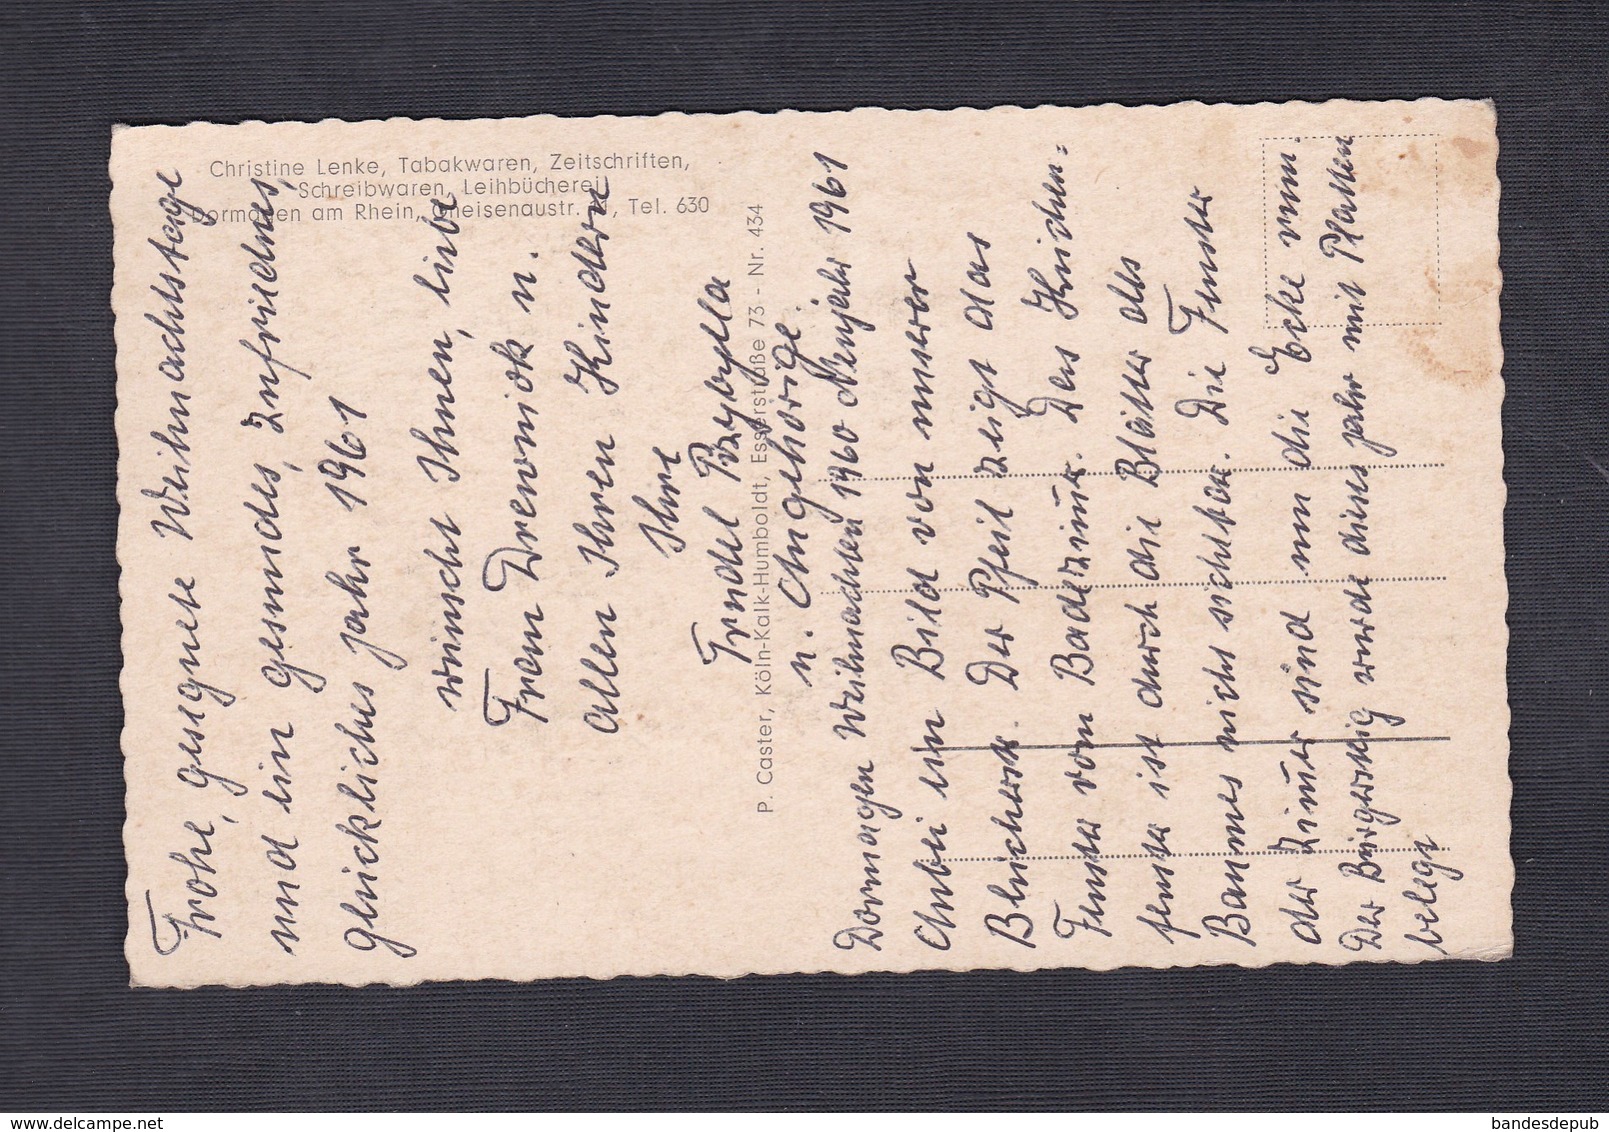 Christine Lenke, Tabakwaren, Zeitschriften,
Schreibwaren, Leihbücherei
Dormagen am Rhein, Gneisenaustr. , Tel. 630
P. Caster, Köln-Kalk-Humboldt, Esserstraße 73 - Nr. 434
Frohe, gesegnete Weihnachtstage
und ein gesundes, zufriednes,
glückliches Jahr 1961
wünscht Ihnen, liebe
Frau Drewniok u.
allen Ihren Kindern
Ihre
Trudel Przybylla
u. Angehörige.
Dormagen Weihnachten 1960 Neujahr 1961
Anbei ein Bild von unserer
Bleicherstr. Der Pfeil zeigt das
Fenster vom Badezimmer. Das Küchen-
fenster ist durch die Blätter des
Baumes nicht sichtbar. Die Fenster
der Zimmer sind um die Ecke rum.
Der Bürgersteig wurde dieses Jahr mit Platten
belegt
bandesdepub.com